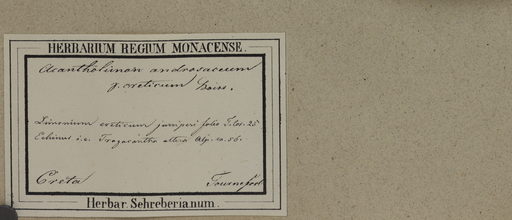 HERBARIUM REGIUM MONACENSE.
Acantholimon androsaceum
γ. creticum Boiss.
Limonium creticum juniperi folio T. Cor. 25
Echinus i.e. Tragacantha altera Alp. ex. 56.
Creta Tournefort
Herbar. Schreberianum.